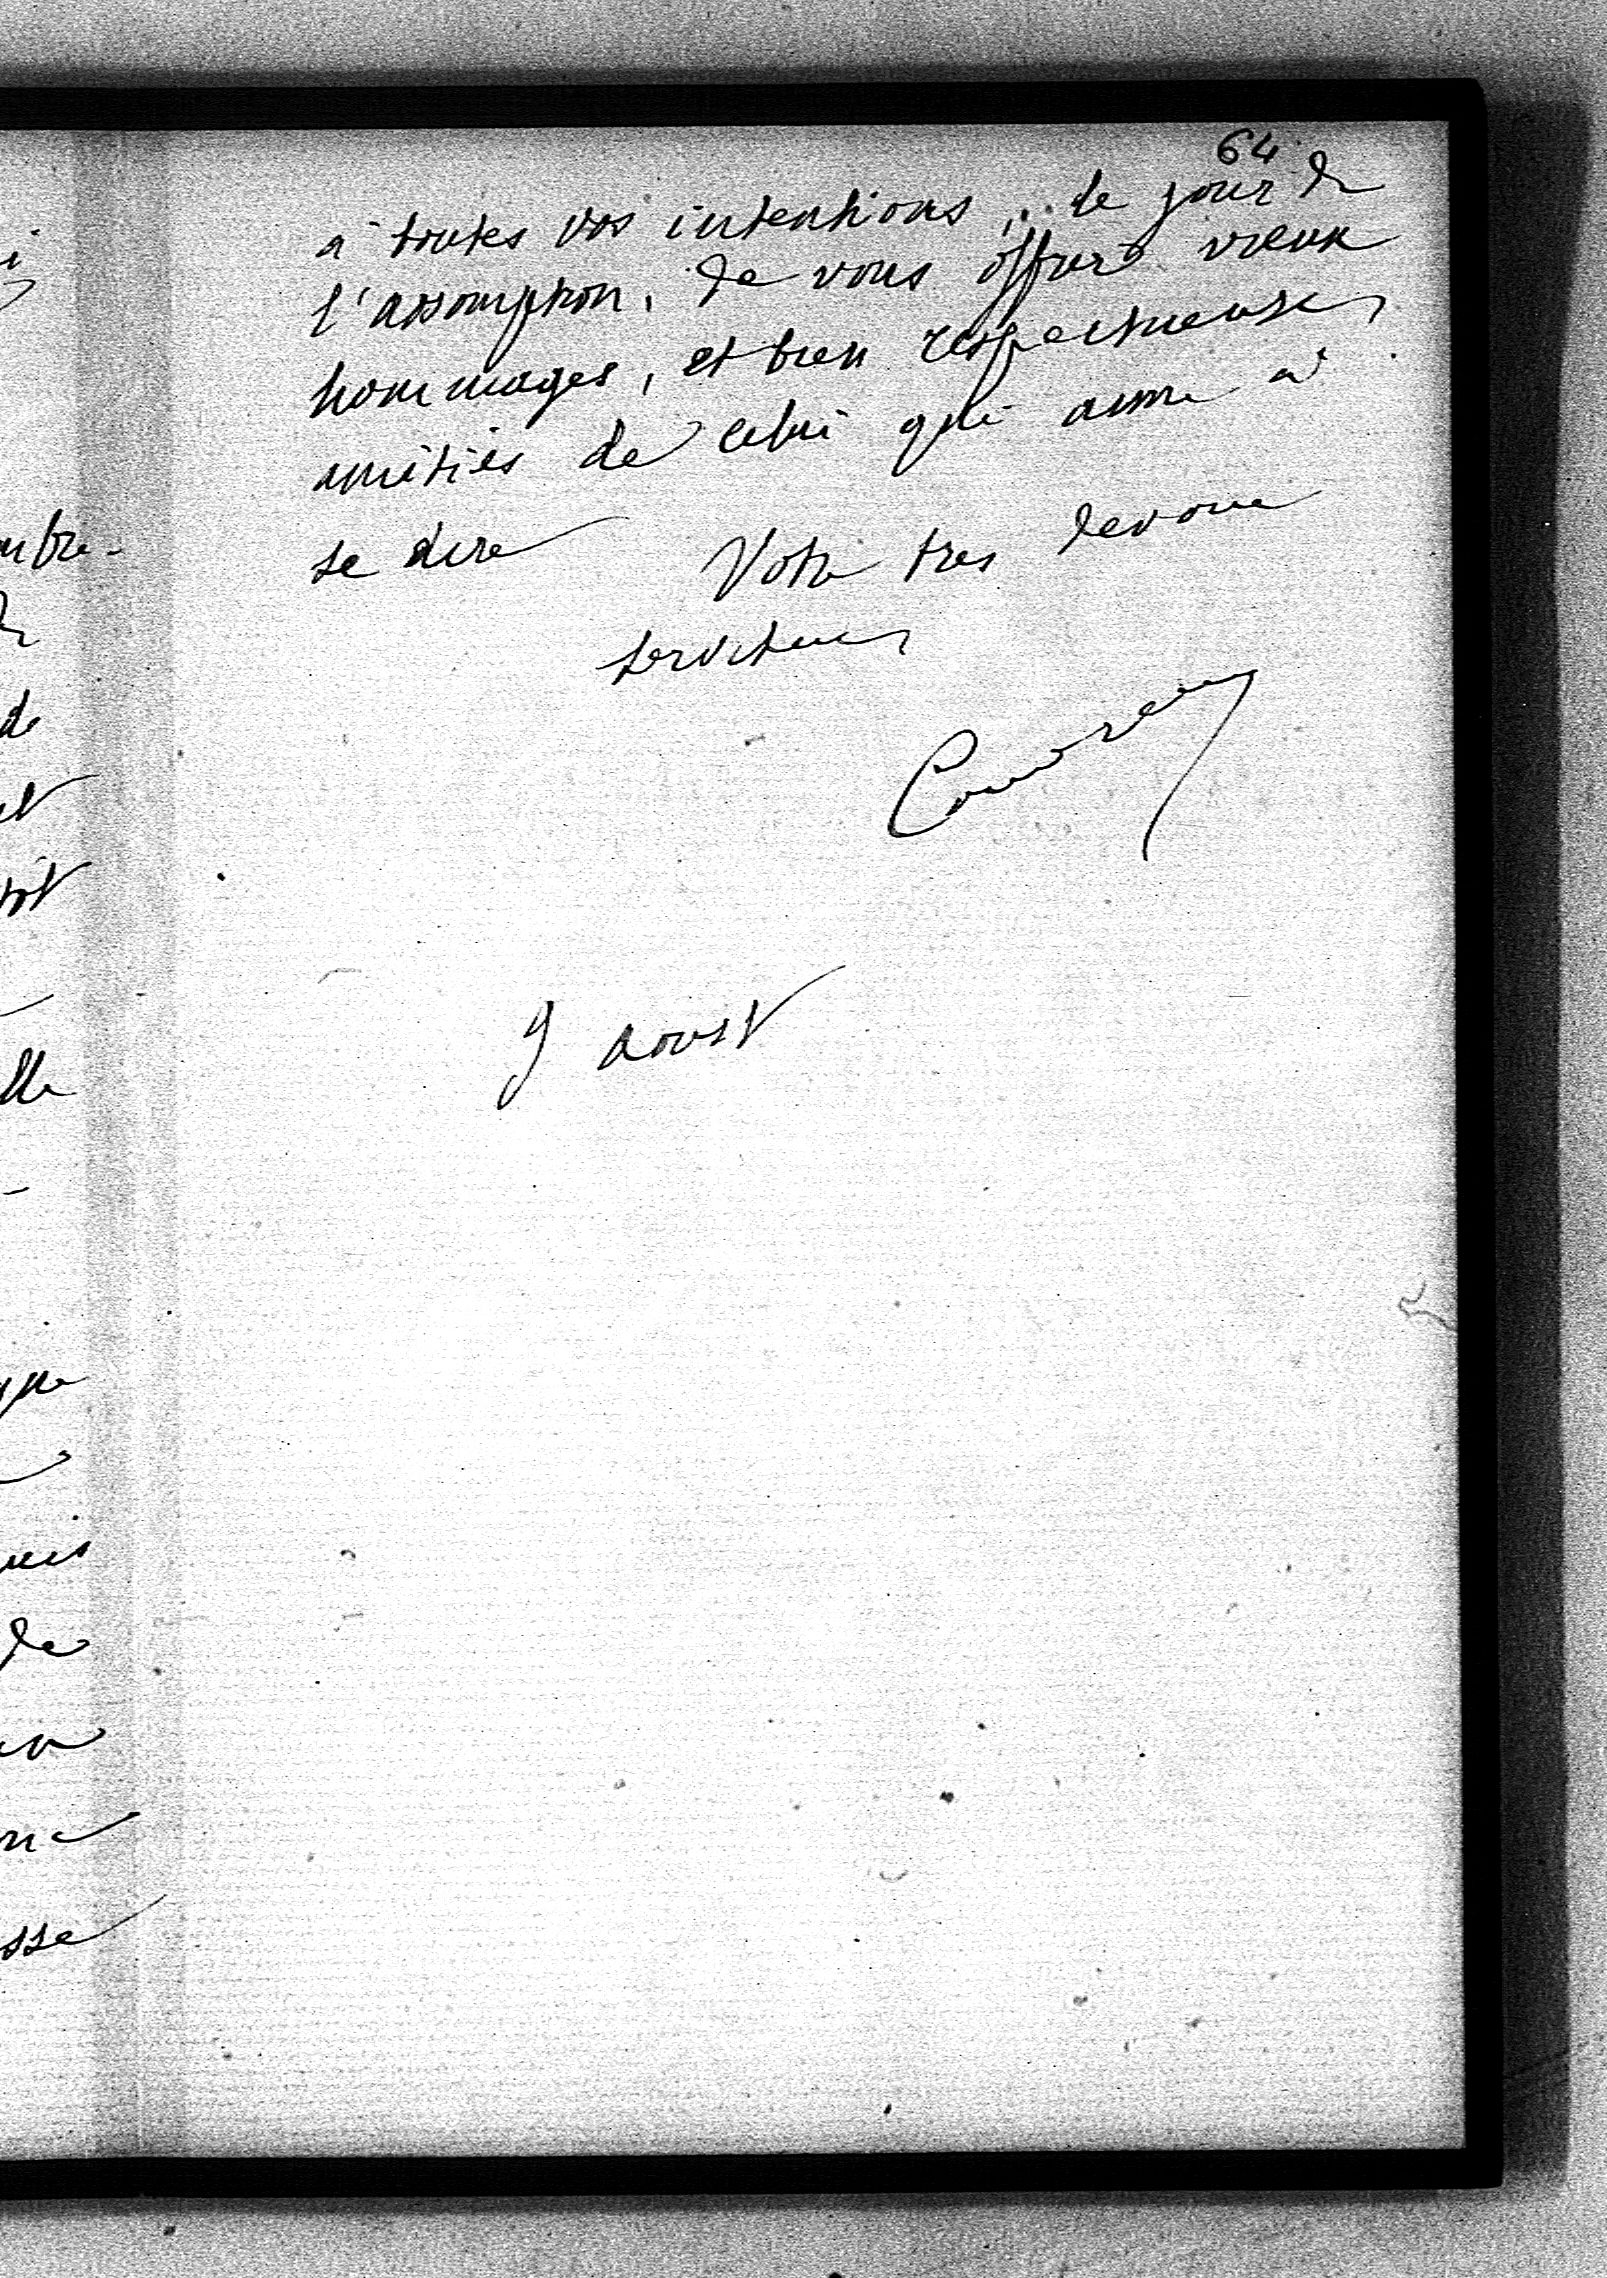 64
à toutes vos intentions, le jour de
l'assomption. De vous offrir vieux
hommages, et bien respectueuses
amitiés de celui qui aime à
se dire
Votre tres devoué
serviteur
9 aoust
ombre-
de
et
lle
que
puis
de
sse